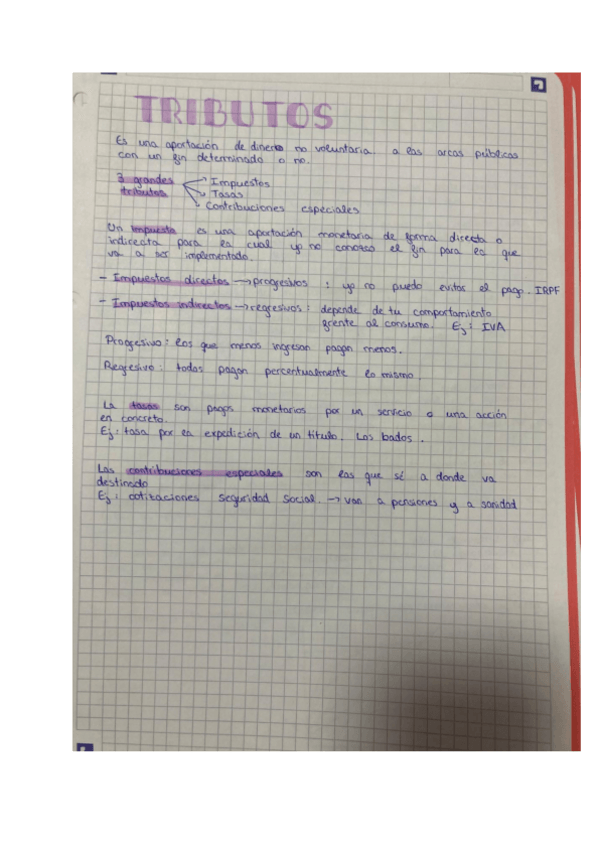 TRIBUTOS
Es una aportación de dinero no voluntaria a las arcas públicas
con un fin determinado o no.
3 grandes tributos
Impuestos
Tasas
Contribuciones especiales
Un impuesto es una aportación monetaria de forma directa o
indirecta para la cual yo no conozco el fin para la que
va a ser implementado.
- Impuestos directos → progresivos : yo no puedo evitar el pago. IRPF
- Impuestos indirectos → regresivos : depende de tu comportamiento
frente al consumo. Ej : IVA
Progresivo : los que menos ingresan pagan menos.
Regresivo : todas pagan percentualmente lo mismo.
La tasas son pagos monetarios por un servicio o una acción
en concreto.
Ej : tasa por la expedición de un título. Los bados .
Las contribuciones especiales son las que sé a donde va
destinado
Ej : cotizaciones seguridad social. → van a pensiones y a sanidad